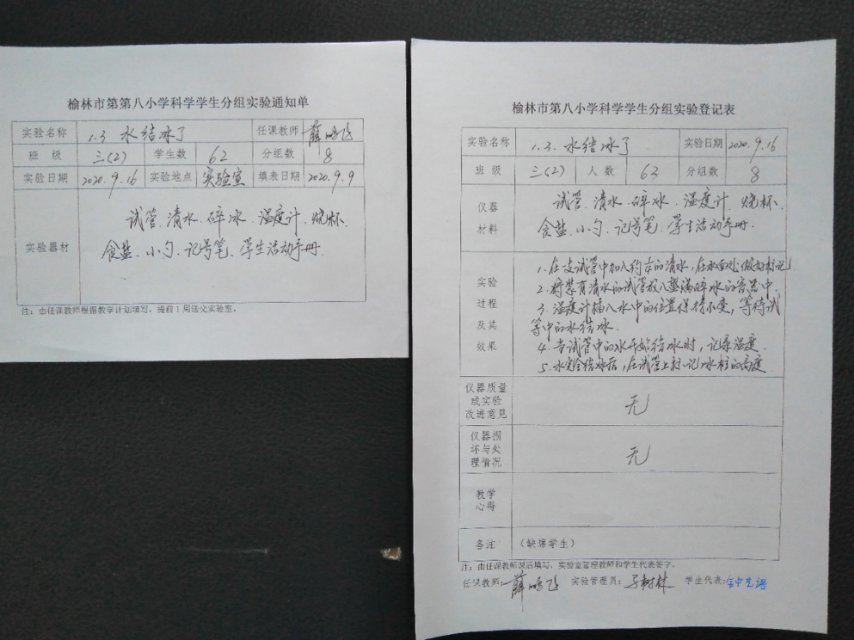 榆林市第第八小学科学学生分组实验通知单
实验名称 1.3 水结冰了 任课教师 薛鹏飞
班 级 三(2) 学生数 62 分组数 8
实验日期 2020.9.16 实验地点 实验室 填表日期 2020.9.9
实验器材
试管、清水、碎冰、温度计、烧杯、
食盐、小勺、记号笔、学生活动手册.
注：由任课教师根据教学计划填写，提前1周送交实验室。
榆林市第八小学科学学生分组实验登记表
实验名称 1.3. 水结冰了 实验日期 2020.9.16
班 级 三(2) 人 数 63 分组数 8
仪器
材料
试管、清水、碎冰、温度计、烧杯、
食盐、小勺、记号笔、学生活动手册.
实验
过程
及其
效果
1.在试管中加入约 的清水，在水面处做好标记
2.将装有清水的试管放入盛满碎冰的容器中.
3.温度计插入水中的位置保持不变，等待试
管中的水结冰.
4.当试管中的水开始结冰时，记录温度.
5.水完全结冰后，在试管上标记冰柱的高度
仪器质量
或实验
改进意见
无
仪器损
坏与处
理情况
无
教学
心得
备注 （缺席学生）
注：由任课教师课后填写，实验室管理教师和学生代表签字。
任课教师: 薛鹏飞 实验管理员: 马树林 学生代表: